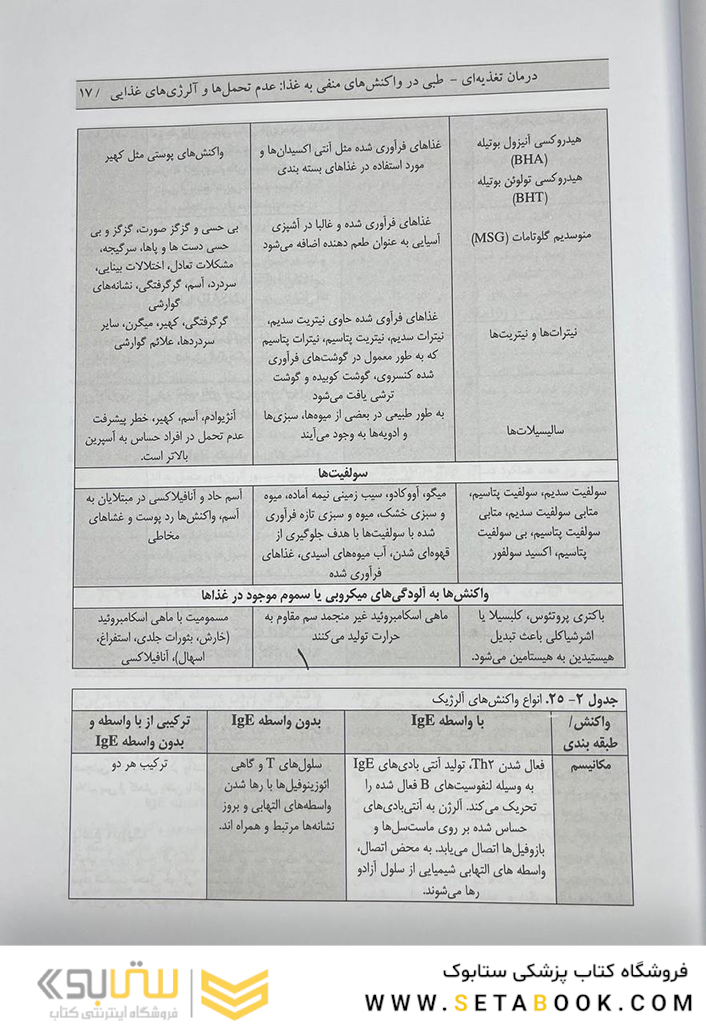 درمان تغذیه‌ای - طبی در واکنش‌های منفی به غذا: عدم تحمل‌ها و آلرژی‌های غذایی / ۱۷
هیدروکسی آنیزول بوتیله
(BHA)
هیدروکسی تولوئن بوتیله
(BHT)
غذاهای فرآوری شده مثل آنتی اکسیدان‌ها و
مورد استفاده در غذاهای بسته بندی
واکنش‌های پوستی مثل کهیر
منوسدیم گلوتامات (MSG)
غذاهای فرآوری شده و غالبا در آشپزی
آسیایی به عنوان طعم دهنده اضافه می‌شود
بی حسی و گزگز صورت، گزگز و بی
حسی دست ها و پاها، سرگیجه،
مشکلات تعادل، اختلالات بینایی،
سردرد، آسم، گرگرفتگی، نشانه‌های
گوارشی
نیترات‌ها و نیتریت‌ها
غذاهای فرآوی شده حاوی نیتریت سدیم،
نیترات سدیم، نیتریت پتاسیم، نیترات پتاسیم
که به طور معمول در گوشت‌های فرآوری
شده کنسروی، گوشت کوبیده و گوشت
ترشی یافت می‌شود
گرگرفتگی، کهیر، میگرن، سایر
سردردها، علائم گوارشی
سالیسیلات‌ها
به طور طبیعی در بعضی از میوه‌ها، سبزی‌ها
و ادویه‌ها به وجود می‌آیند
آنژیوادم، آسم، کهیر، خطر پیشرفت
عدم تحمل در افراد حساس به آسپرین
بالاتر است.
سولفیت‌ها
سولفیت سدیم، سولفیت پتاسیم،
متابی سولفیت سدیم، متابی
سولفیت پتاسیم، بی سولفیت
پتاسیم، اکسید سولفور
میگو، آووکادو، سیب زمینی نیمه آماده، میوه
و سبزی خشک، میوه و سبزی تازه فرآوری
شده با سولفیت‌ها با هدف جلوگیری از
قهوه‌ای شدن، آب میوه‌های اسیدی، غذاهای
فرآوری شده
آسم حاد و آنافیلاکسی در مبتلایان به
آسم، واکنش‌ها رد پوست و غشاهای
مخاطی
واکنش‌ها به آلودگی‌های میکروبی یا سموم موجود در غذاها
باکتری پروتئوس، کلبسیلا یا
اشرشیاکلی باعث تبدیل
هیستیدین به هیستامین می‌شود.
ماهی اسکامبروئید غیر منجمد سم مقاوم به
حرارت تولید می‌کنند
مسمومیت با ماهی اسکامبروئید
(خارش، بثورات جلدی، استفراغ،
اسهال)، آنافیلاکسی
۱
جدول ۲- ۲۵. انواع واکنش‌های آلرژیک
واکنش/
طبقه بندی
با واسطه IgE
بدون واسطه IgE
ترکیبی از با واسطه و
بدون واسطه IgE
مکانیسم
فعال شدن Th۲، تولید آنتی بادی‌های IgE
به وسیله لنفوسیت‌های B فعال شده را
تحریک می‌کند. آلرژن به آنتی‌بادی‌های
حساس شده بر روی ماست‌سل‌ها و
بازوفیل‌ها اتصال می‌یابد. به محض اتصال،
واسطه های التهابی شیمیایی از سلول آزادو
رها می‌شوند.
سلول‌های T و گاهی
ائوزینوفیل‌ها با رها شدن
واسطه‌های التهابی و بروز
نشانه‌ها مرتبط و همراه اند.
ترکیب هر دو
فروشگاه کتاب پزشکی ستابوک
WWW.SETABOOK.COM
ستابوک
فروشگاه اینترنتی کتاب